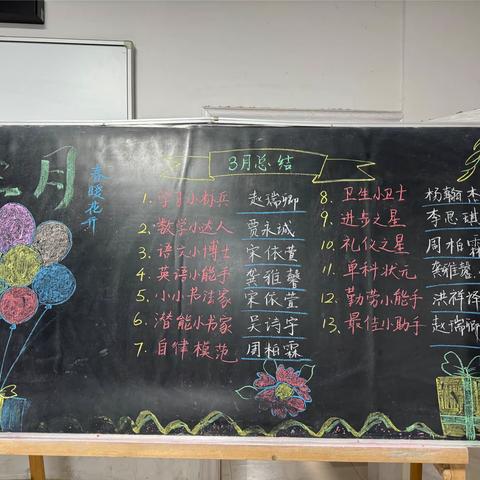 三月
春暖花开
3月总结
1. 学习小标兵 赵瑞卿
2. 数学小达人 贾永城
3. 语文小博士 宋依萱
4. 英语小能手 龚雅馨
5. 小小书法家 宋依萱
6. 潜能小书家 吴诗宇
7. 自律模范 周柏霖
8. 卫生小卫士 杨翰杰
9. 进步之星 李思琪
10. 礼仪之星 周柏霖
11. 单科状元 龚雅馨
12. 勤劳小能手 洪祥译
13. 最佳小助手 赵瑞卿